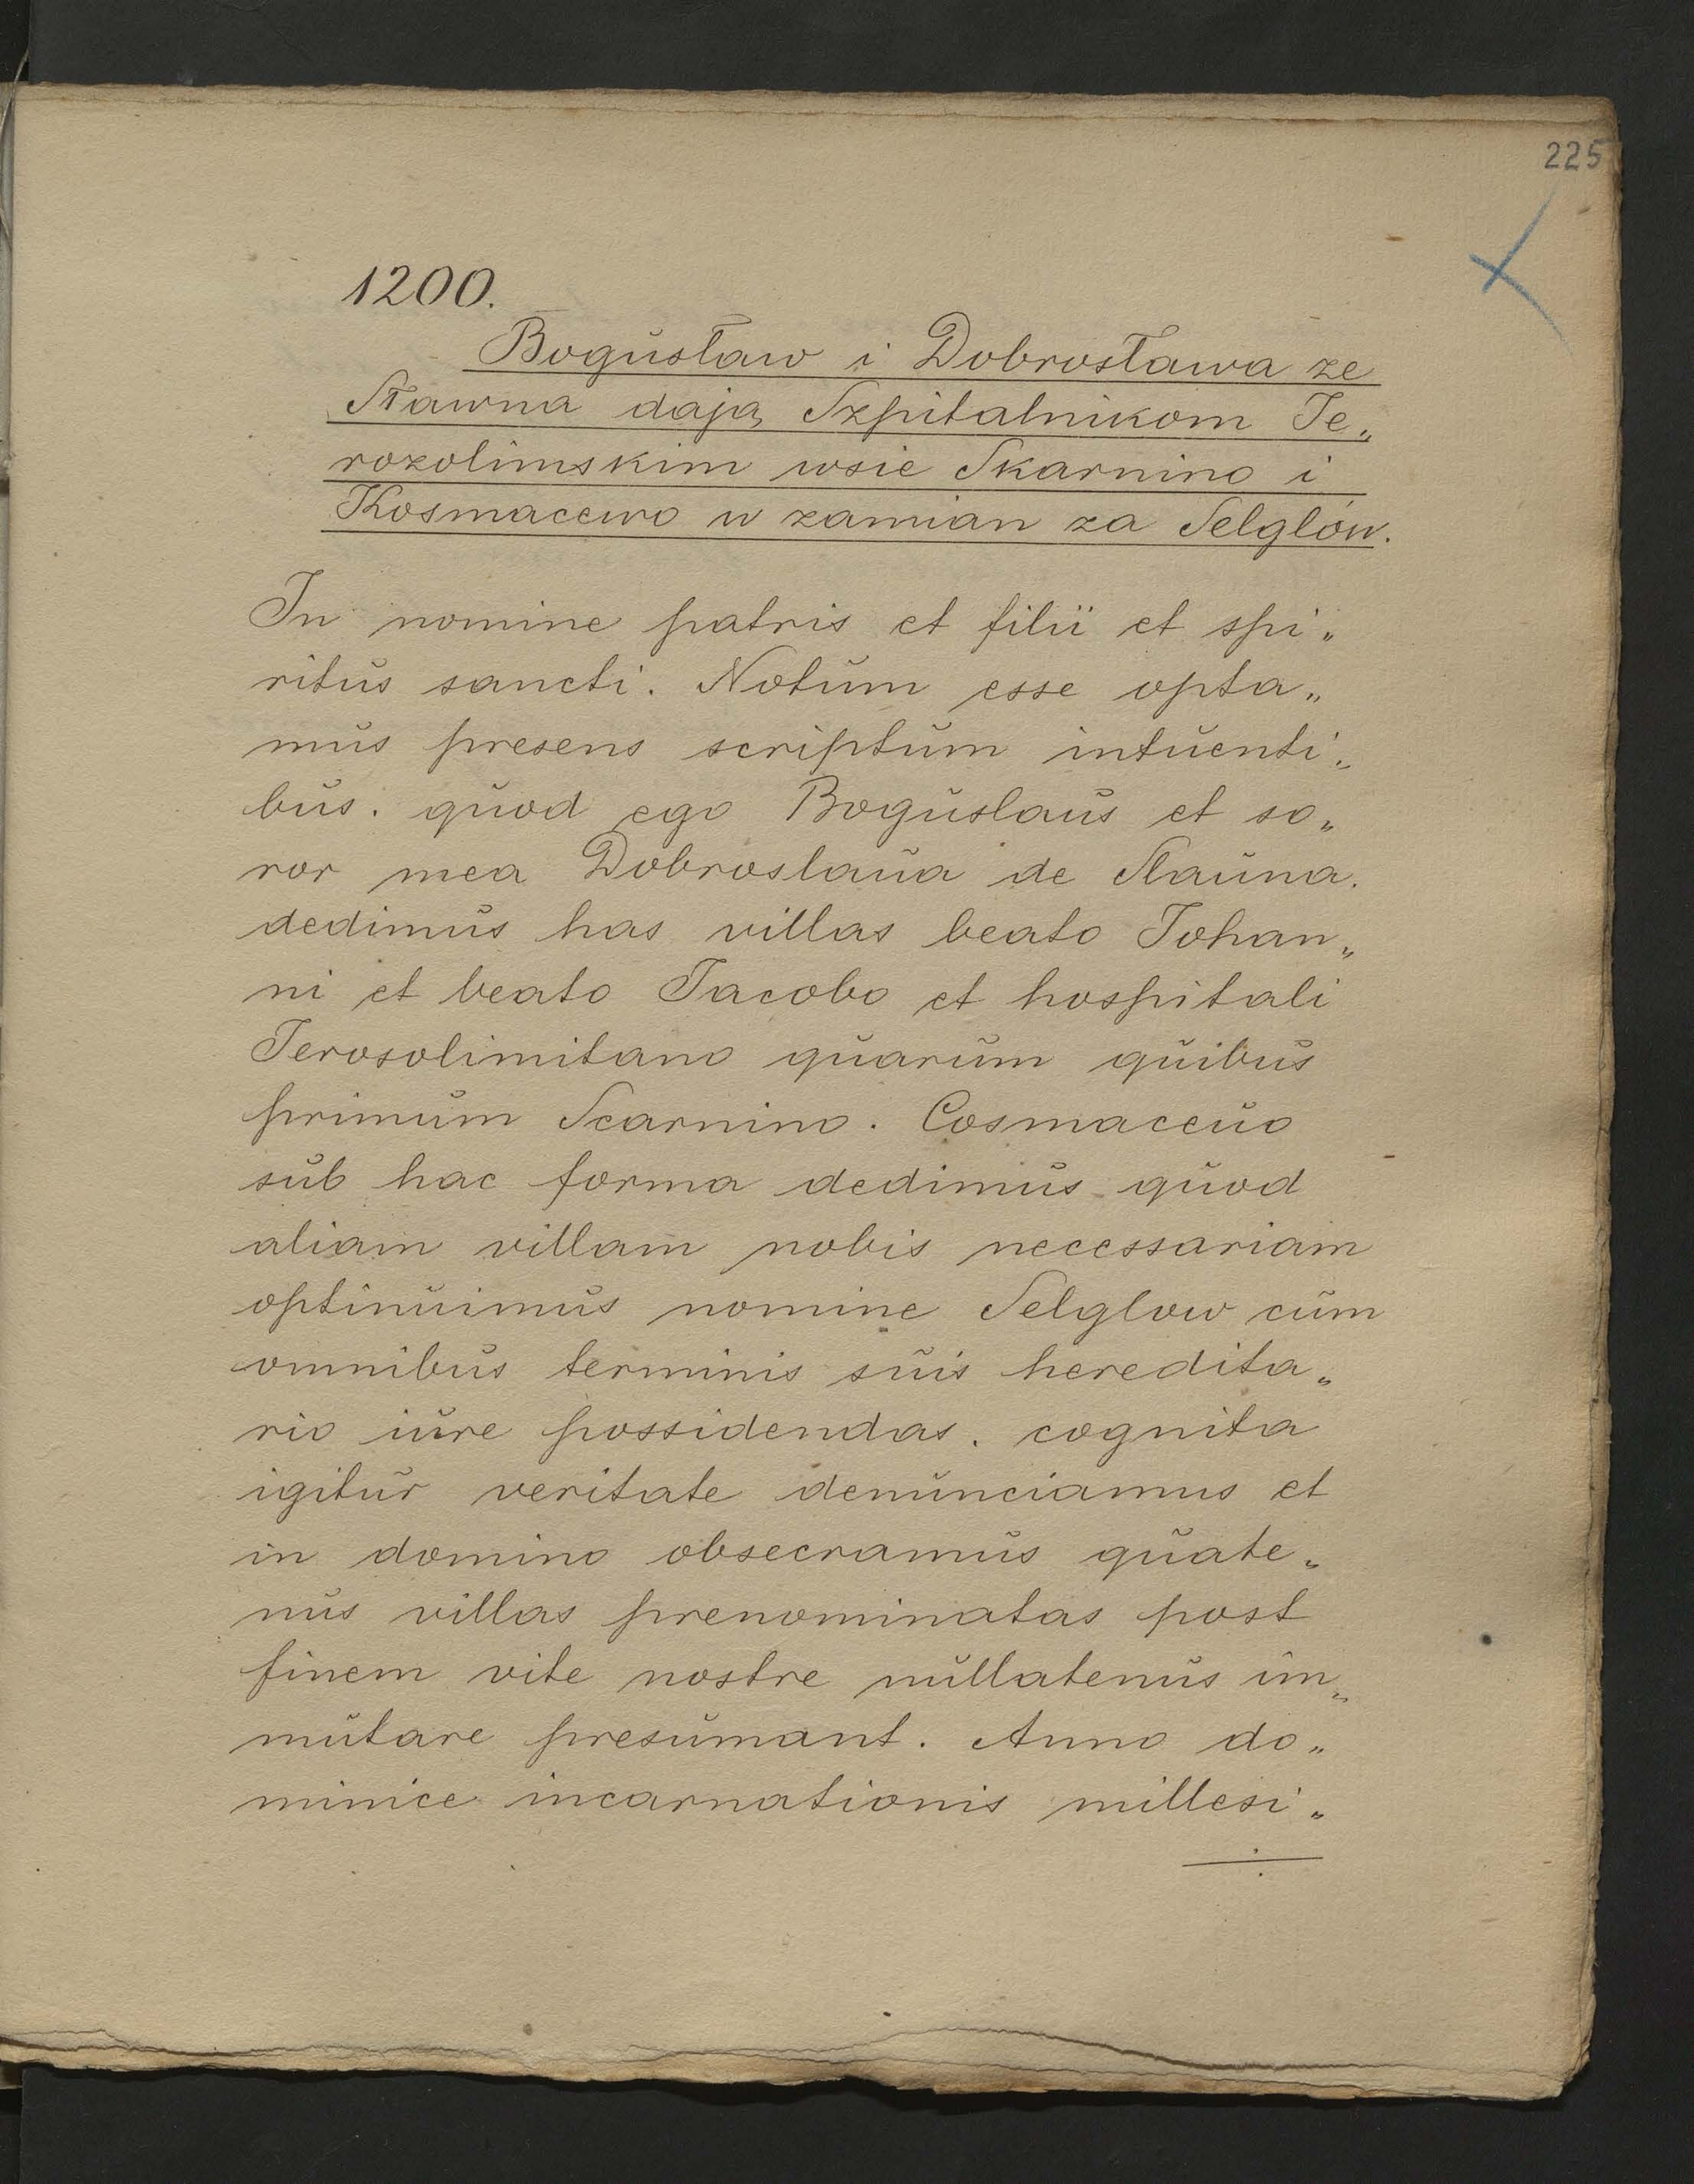 225
1200.
Bogusław i Dobrosława ze
Sławna dają Szpitalnikom Je„
rozolimskim wsie Skarnino i
Kosmacewo w zamian za Selglów.
In nomine patris et filii et spi„
ritus sancti. Notum esse opta„
mus presens scriptum intuenti„
bus. quod ego Boguslaus et so„
ror mea Dobroslaua de Slauna.
dedimus has villas beato Johan„
ni et beato Jacobo et hospitali
Jerosolimitano quarum quibus
primum Scarnino. Cosmaceuo
sub hac forma dedimus quod
aliam villam nobis necessariam
optinuimus nomine Selglow cum
omnibus terminis suis heredita„
rio iure possidendas. cognita
igitur veritate denunciamus et
in domino obsecramus quate„
nus villas prenominatas post
finem vite nostre nullatenus im„
mutare presumant. Anno do„
minice incarnationis millesi„